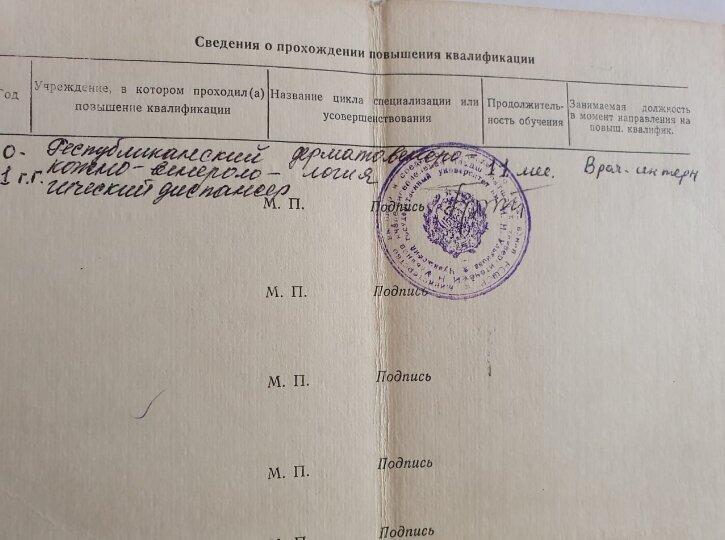 Сведения о прохождении повышения квалификации
Год Учреждение, в котором проходил(а) повышение квалификации Название цикла специализации или усовершенствования Продолжительность обучения Занимаемая должность в момент направления на повыш. квалифик.
0- Республиканский дерматовенеро- 11 мес. Врач-интерн
1 г.г. кожно-венероло- логия
гический диспансер
М. П. Подпись
М. П. Подпись
М. П. Подпись
М. П. Подпись
М. П. Подпись